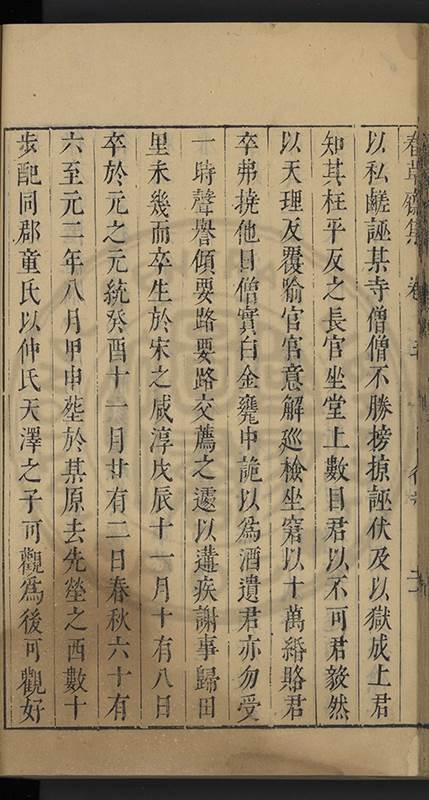 春草齋集 卷五
以私鹺誣某寺僧僧不勝搒掠誣伏及以獄成上君
知其枉平反之長官坐堂上數目君以不可君毅然
以天理反覆喻官官意解廵檢坐竄以十萬緡賂君
卒弗撓他日僧實白金甕中詭以爲酒遺君亦勿受
一時聲譽傾要路要路交薦之遽以遘疾謝事歸田
里未幾而卒生於宋之咸淳戊辰十一月十有八日
卒於元之元統癸酉十一月廿有二日春秋六十有
六至元二年八月甲申塟於某原去先塋之西數十
步配同郡童氏以仲氏天澤之子可觀爲後可觀好